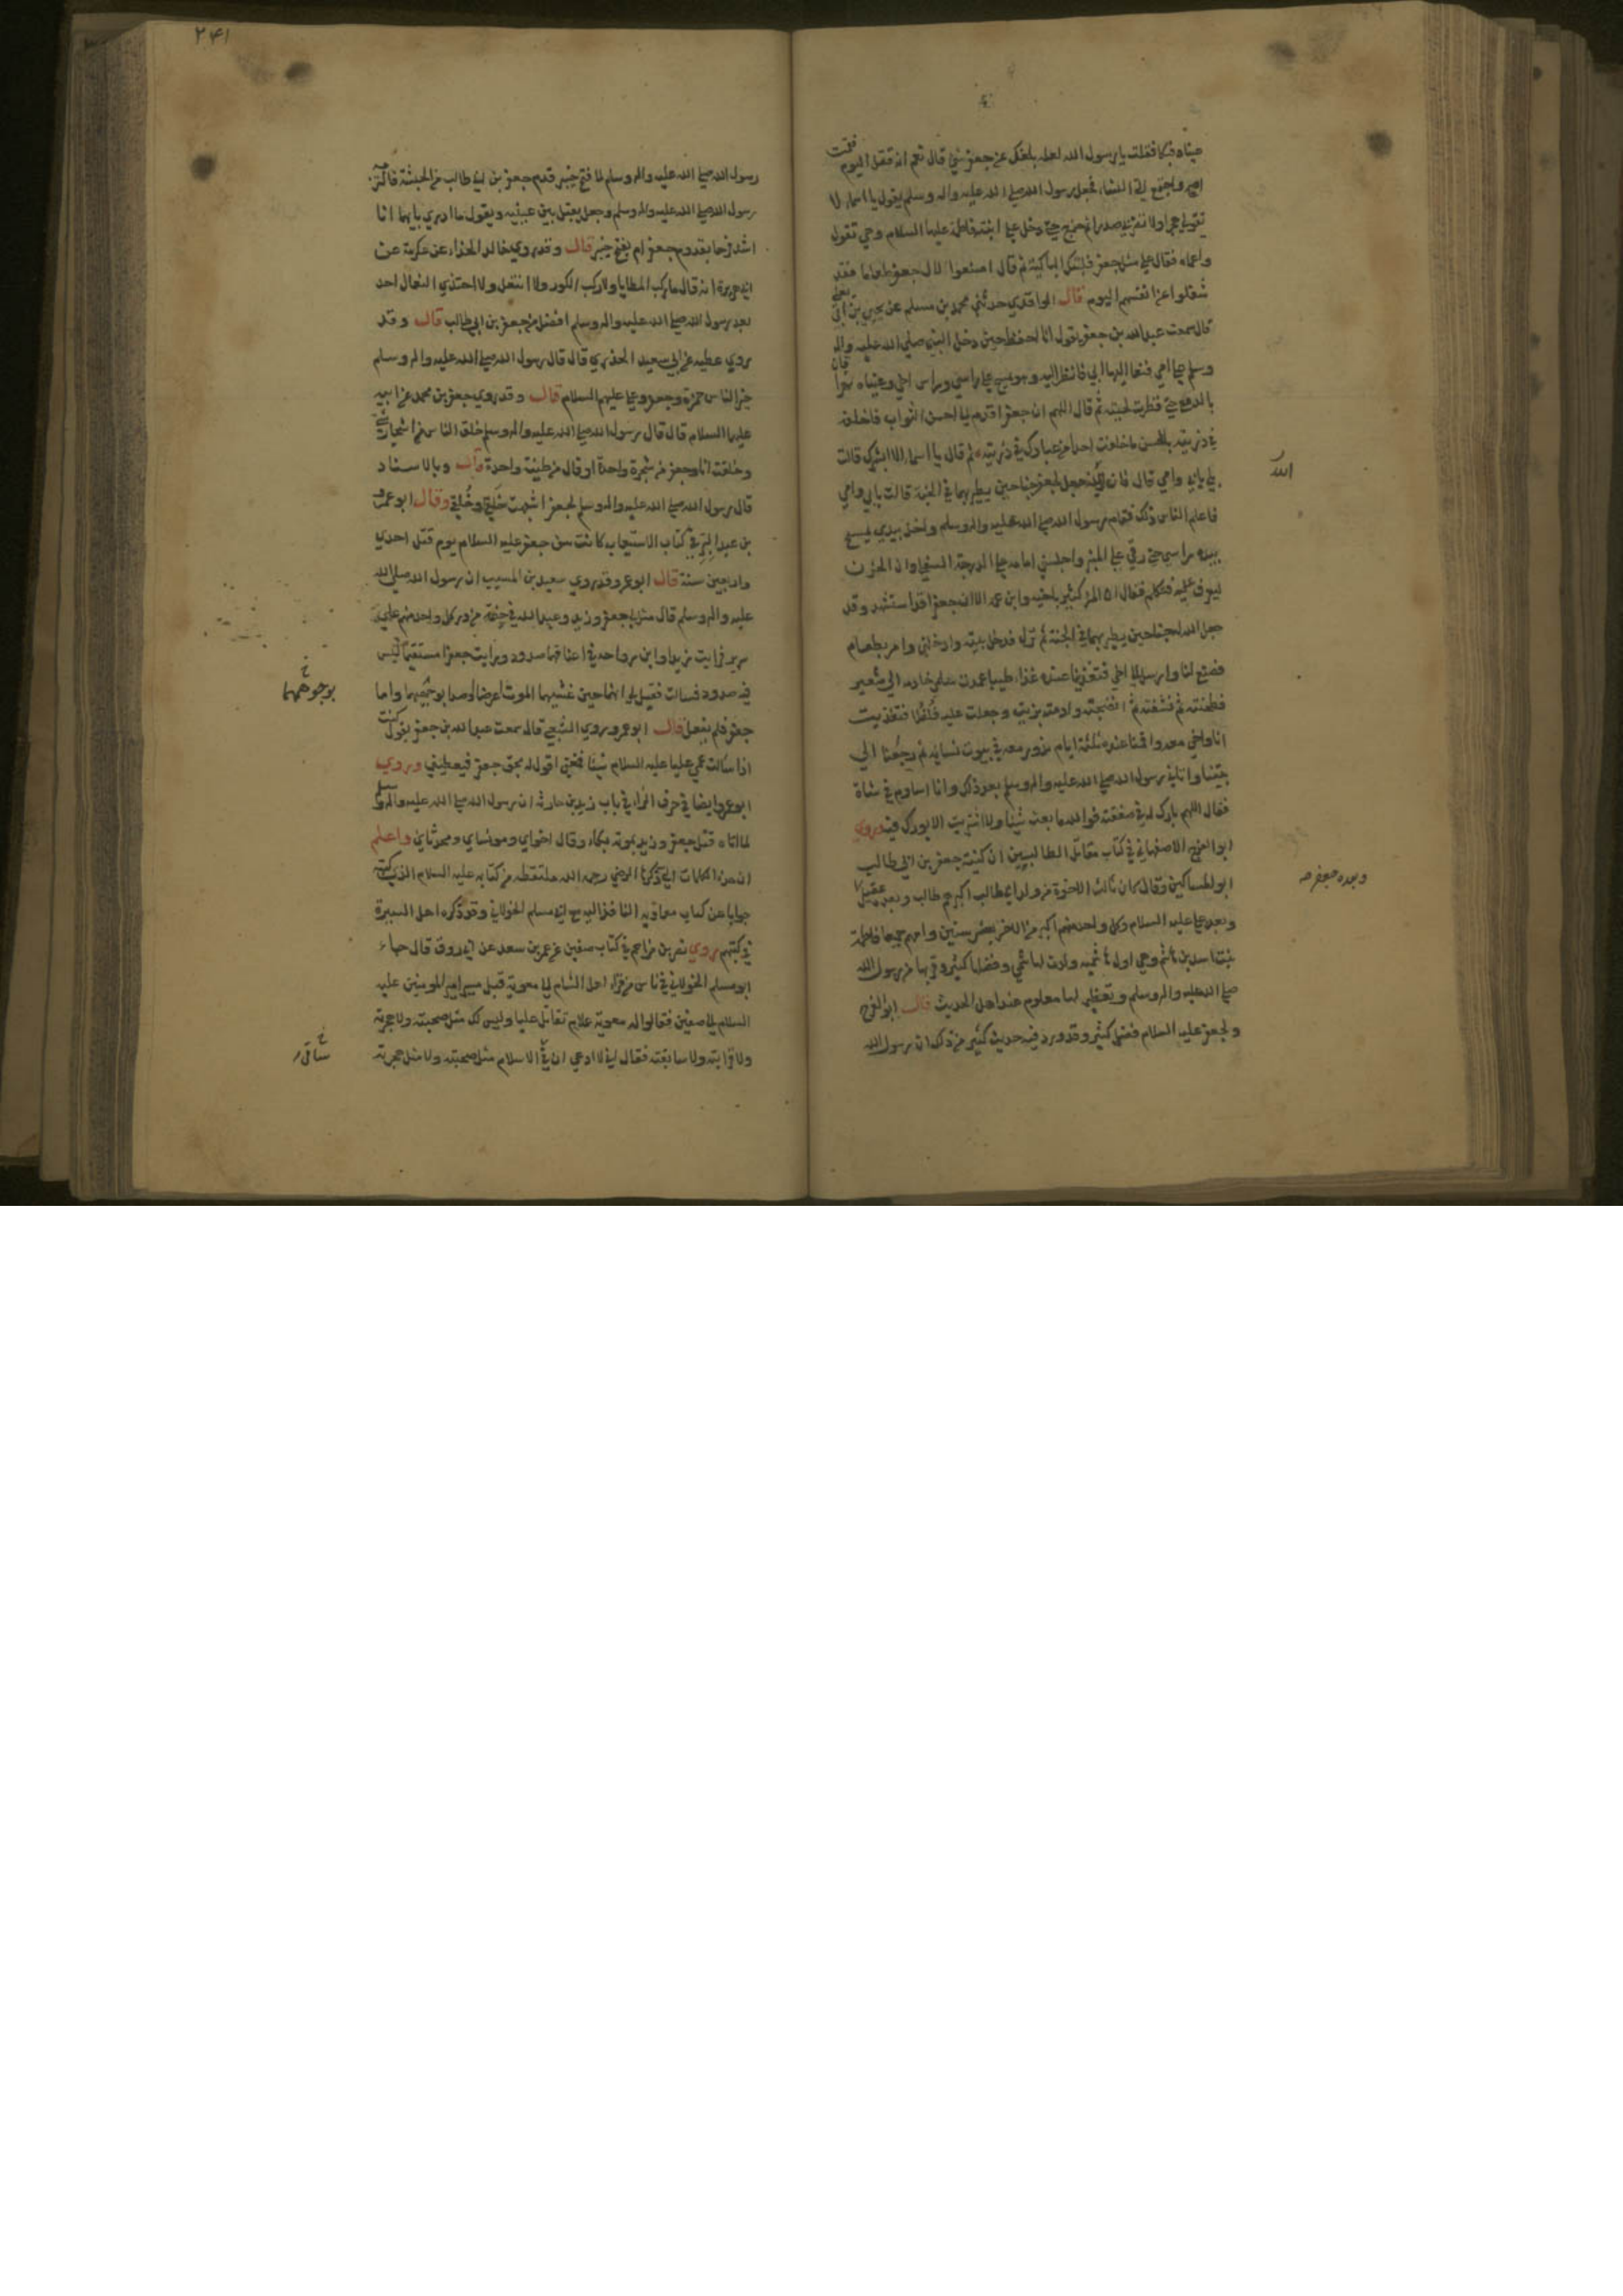 عيناه فبكا فقلت يا رسول الله لعله بلغك عن جعفر شيء قال نعم انه قتل اليوم فقمت
اصيح واجتمع الي النساء فجعل رسول الله صلي الله عليه واله وسلم يقول يا اسماء لا
تقولي هجرا ولا تضربي صدرا ثم خرج حتي دخل علي ابنته فاطمة عليها السلام وهي تقول
واعماه فقال علي مثل جعفر فلتبك الباكية ثم قال اصنعوا لال جعفر طعاما فقد
شغلوا عن انفسهم اليوم قال الواقدي حدثني محمد بن مسلم عن يحيي بن ابي يعلي
قال سمعت عبد الله بن جعفر يقول انا احفظ حين دخل النبي صلي الله عليه واله
وسلم علي امي فنعا اليها ابي فانظر اليه وهو يمسح علي راسي وراس اخي وعيناه تهراقان
بالدمع حتي قطرت لحيته ثم قال اللهم ان جعفرا قدم الي احسن الثواب فاخلفه
في ذريته باحسن ما خلفت احدا من عبادك في ذريته ثم قال يا اسماء الا ابشرك قالت
بلي بابي وامي قال فان الله جعل لجعفر جناحين يطير بهما في الجنة قالت بابي وامي
الله
فاعلم الناس ذلك فقام رسول الله صلي الله عليه واله وسلم واخذ بيدي يمسح
بيده راسي حتي رقي علي المنبر واجلسني امامه علي الدرجة السفلي وان الحزن
ليعرف عليه فتكلم فقال ان المرء كثير باخيه وابن عمه الا ان جعفرا قد استشهد وقد
جعل الله له جناحين يطير بهما في الجنة ثم نزل فدخل بيته وادخلني وامر بطعام
فصنع لنا وارسل الي اخي فتغذينا عنده غذاء طيبا عمدت سلمي خادمه الي شعير
فطحنته ثم نشفته ثم انضجته وادمته بزيت وجعلت عليه فلفلا فتغذيت
انا واخي معه واقمنا عنده ثلثة ايام ندور معه في بيوت نسائه ثم رجعنا الي
بيتنا واتاني رسول الله صلي الله عليه واله وسلم بعد ذلك وانا اساوم في شاة
فقال اللهم بارك له في صفقته فوالله ما بعت شيئا ولا اشتريت الا بورك فيه وروي
ابو الفرج الاصفهاني في كتاب مقاتل الطالبيين ان كنية جعفر بن ابي طالب
ابو المساكين وقال كان ثالث الاخوة من ولد ابي طالب اكبرهم طالب وبعده عقيل
وبعده جعفر صح
وبعده علي عليه السلام وكل واحد منهم اكبر من الاخر بعشر سنين وامهم جميعا فاطمة
بنت اسد بن هاشم وهي اول هاشمية ولدت لهاشمي وفضلها كثير وقربها من رسول الله
صلي الله عليه واله وسلم وتعظيمه لها معلوم عند اهل الحديث قال ابو الفرج
ولجعفر عليه السلام فضل كثير وقد ورد فيه حديث كثير من ذلك ان رسول الله
٢٤١
رسول الله صلي الله عليه واله وسلم لما فتح خيبر قدم جعفر بن ابي طالب من الحبشة فالتزمه
رسول الله صلي الله عليه واله وسلم وجعل يقبل بين عينيه ويقول ما ادري بايهما انا
اشد فرحا بقدوم جعفر ام بفتح خيبر قال وقد روي خالد الحذاء عن عكرمة عن
ابي هريرة انه قال ما ركب المطايا ولا ركب الكور ولا انتعل ولا احتذي النعال احد
بعد رسول الله صلي الله عليه واله وسلم افضل من جعفر بن ابي طالب قال وقد
روي عطيه عن ابي سعيد الخدري قال قال رسول الله صلي الله عليه واله وسلم
خير الناس حمزة وجعفر وعلي عليهم السلام قال وقد روي جعفر بن محمد عن ابيه
عليهما السلام قال قال رسول الله صلي الله عليه واله وسلم خلق الناس من اشجار شتي
وخلقت انا وجعفر من شجرة واحدة او قال من طينة واحدة قال وبالاسناد
قال رسول الله صلي الله عليه واله وسلم لجعفر اشبهت خلقي وخلقي وقال ابو عمر
بن عبد البر في كتاب الاستيعاب كانت سن جعفر عليه السلام يوم قتل احدي
واربعين سنة قال ابو عمر وقد روي سعيد بن المسيب ان رسول الله صلي الله
عليه واله وسلم قال مثل لي جعفر وزيد وعبد الله في خيمة من در كل واحد منهم علي
سرير فرايت زيدا وابن رواحة في اعناقهما صدود ورايت جعفرا مستقيما ليس
فيه صدود فسالت فقيل لي انهما حين غشيهما الموت اعرضا وصدا بوجههما واما
بوجوههما
جعفر فلم يفعل قال ابو عمر وروي الشعبي قال سمعت عبد الله بن جعفر يقول كنت
اذا سالت عمي عليا عليه السلام شيئا فمنعني اقول له بحق جعفر فيعطيني وروي
ابو عمر ايضا في حرف الزاء في باب زيد بن حارثة ان رسول الله صلي الله عليه واله وسلم
لما اتاه قتل جعفر وزيد بموته بكا وقال اخواي ومونساي ومحدثاي واعلم
ان هذه الكلمات التي ذكرها الرضي رحمه الله ملتقطه من كتابه عليه السلام الذي كتبه
جوابا عن كتاب معاوية النافذ اليه مع ابي مسلم الخولاني وقد ذكره اهل السيرة
في كتبهم روي نصر بن مزاحم في كتاب صفين عن عمر بن سعد عن ابي ورق قال جاء
ابو مسلم الخولاني في ناس من قراء اهل الشام الي معوية قبل مسير امير المومنين عليه
السلام الي صفين فقالوا له يا معوية علام تقاتل عليا وليس لك مثل صحبته ولا هجرته
ولا قرابته ولا سابقته فقال اني لا ادعي ان لي في الاسلام مثل صحبته ولا مثل هجرته